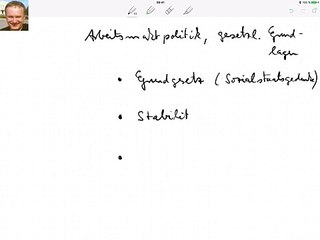 Arbeitsmarktpolitik, gesetzl. Grund-
lagen
• Grundgesetz (Sozialstaatsgedanke)
• Stabilit
•